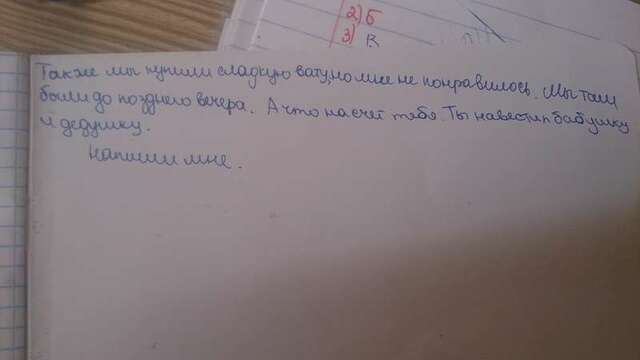 2) Б
3) В
Также мы купили сладкую вату, но мне не понравилось. Мы там
были до позднего вечера. А что насчёт тебя. Ты навестил бабушку
и дедушку.
Напиши мне.